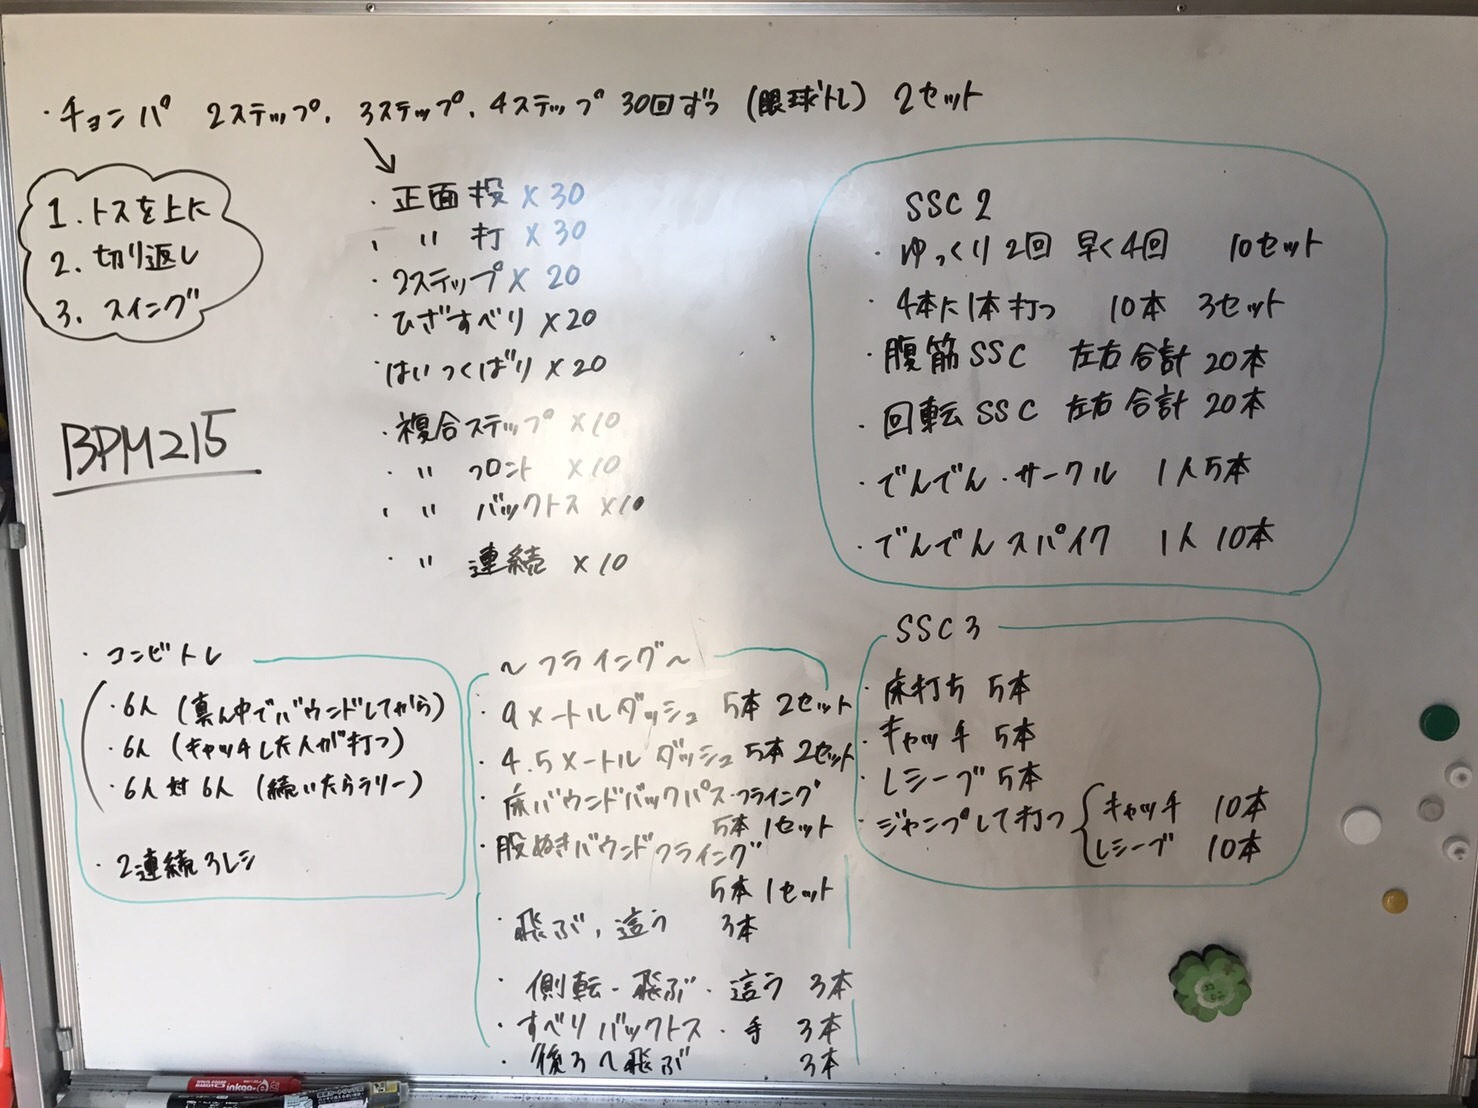 ・チョンパ 2ステップ、3ステップ、4ステップ 30回ずつ (眼球トレ) 2セット
1. トスを上に
2. 切り返し
3. スイング
BPM215
・正面投 × 30
・ 〃 打 × 30
・2ステップ × 20
・ひざすべり × 20
・はいつくばり × 20
・複合ステップ × 10
・ 〃 フロント × 10
・ 〃 バックトス × 10
・ 〃 連続 × 10
SSC 2
・ゆっくり2回 早く4回 10セット
・4本に1本打つ 10本 3セット
・腹筋SSC 左右合計 20本
・回転SSC 左右合計 20本
・でんでん・サークル 1人5本
・でんでんスパイク 1人10本
・コンビトレ
・6人 (真ん中でバウンドしてから)
・6人 (キャッチした人が打つ)
・6人対6人 (続いたらラリー)
・2連続3レシ
〜フライング〜
・9メートルダッシュ 5本 2セット
・4.5メートルダッシュ 5本 2セット
・床バウンドバックパス・フライング
5本 1セット
・股ぬきバウンドフライング
5本 1セット
・飛ぶ、這う 3本
・側転・飛ぶ・這う 3本
・すべりバックトス・手 3本
・後ろへ飛ぶ 3本
SSC 3
・床打ち 5本
・キャッチ 5本
・レシーブ 5本
・ジャンプして打つ キャッチ 10本
レシーブ 10本
inkga-e